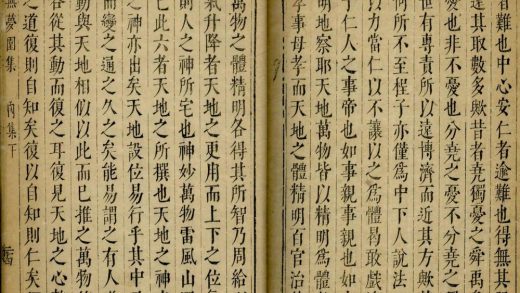 者難也中心安仁者逾難也得無其
達其取數多歟昔者堯獨憂之舜禹
愛也非不憂也分堯之憂不分堯之
世有專責所以遠博濟而近其方歟
何所不至程子亦僅為中下人說法
以力當仁以不讓以之為體曷敢戲
于仁人之事帝也如事親事親也如
明地察耶天地萬物皆以精明為
孝事母孝而天地之體精明百官治
萬物之體精明各得其所智乃周給
氣升降者天地之更用而上下之位
則人之神所宅也神妙萬物雷風山
已此六者天地之所撰也天地之神
之神亦出矣天地設位易行乎其中
而變之通之久之矣能易謂之有人
動與天地相似以此而已推之萬物
各從其動而復之耳復見天地之心
之道復則自知矣復以自知則仁矣
無夢園集 內集下